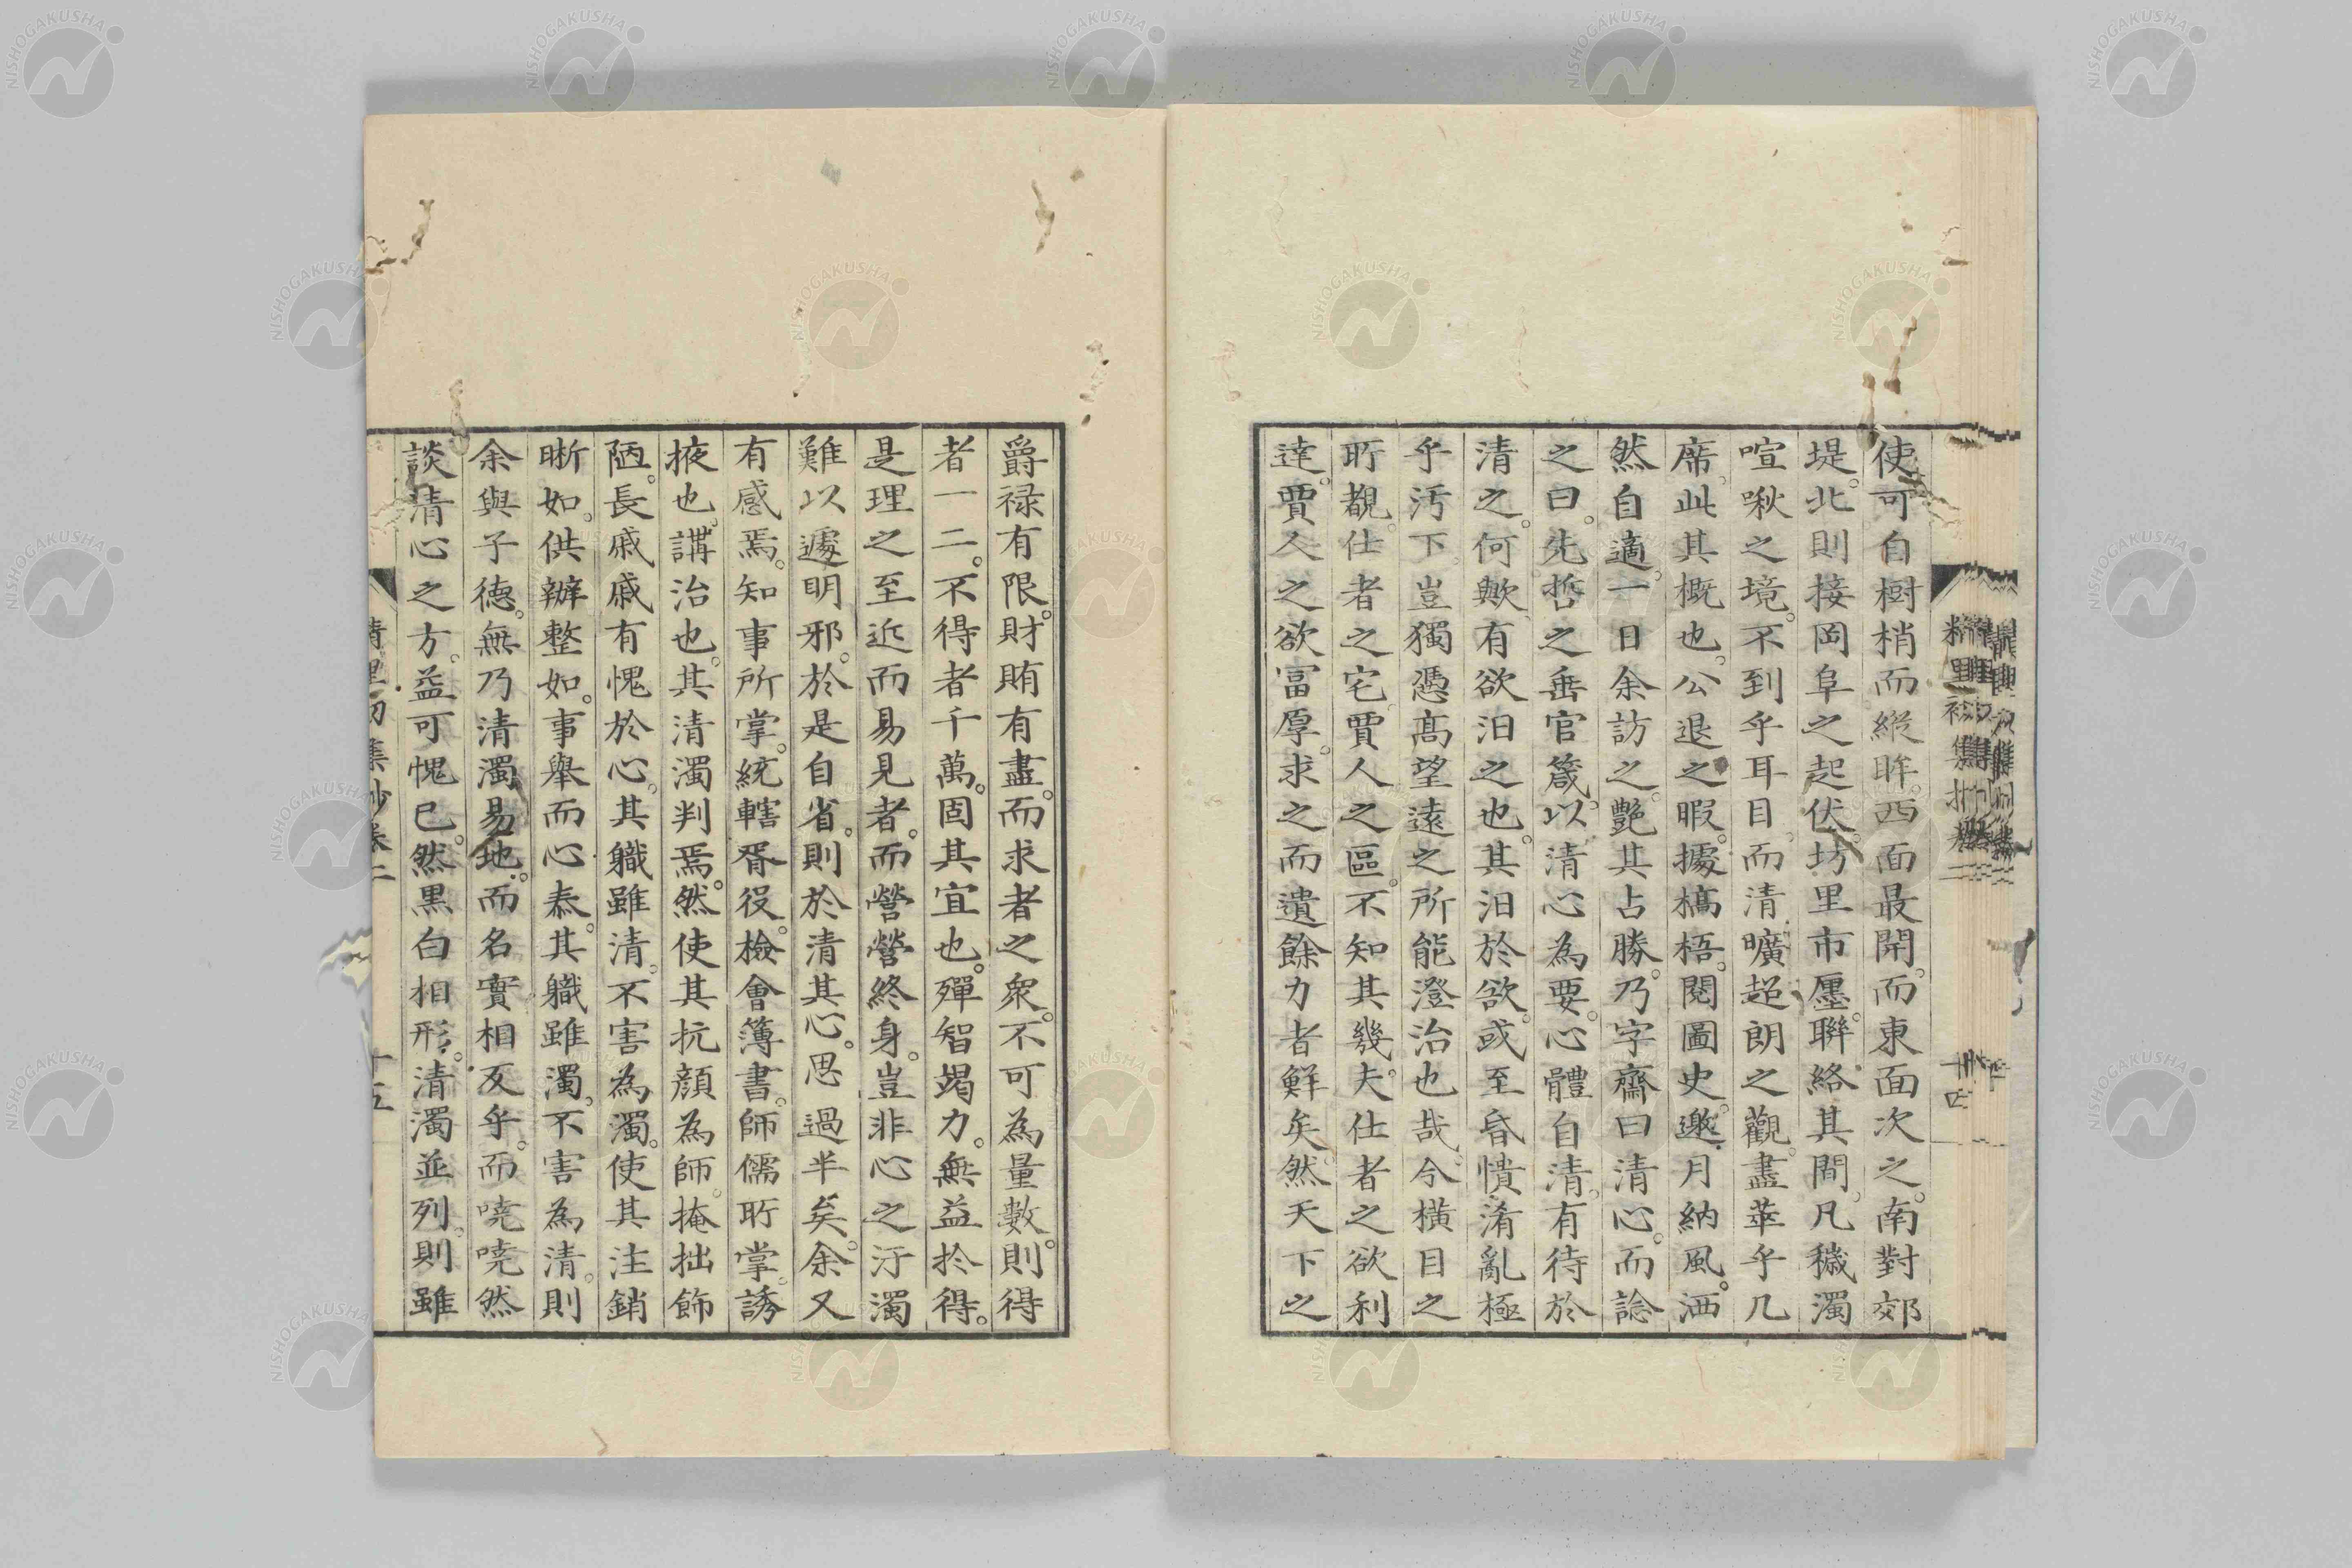 使可自樹梢而縱眸。西面最開。而東面次之。南對郊
堤。北則接岡阜之起伏。坊里市廛。聯絡其間。凡穢濁
喧啾之境。不到乎耳目。而清曠超朗之觀。盡萃乎几
席。此其概也。公退之暇。據槁梧。閱圖史。邀月納風。洒
然自適。一日余訪之。艷其占勝。乃字齋曰清心。而諗
之曰。先哲之垂官箴。以清心為要。心體自清。有待於
清之。何歟。有欲汩之也。其汩於欲。或至昏憒淆亂極
乎汚下。豈獨憑高望遠之所能澄治也哉。今橫目之
所覩。仕者之宅。賈人之區。不知其幾夫。仕者之欲利
達。賈人之欲富厚。求之而遺餘力者鮮矣。然天下之
爵祿有限。財賄有盡。而求者之衆。不可為量數。則得
者一二。不得者千萬。固其宜也。殫智竭力。無益於得。
是理之至近而易見者。而營營終身。豈非心之汙濁
難以遽明邪。於是自省。則於清其心。思過半矣。余又
有感焉。知事所掌。統轄胥役。檢會簿書。師儒所掌。誘
掖也。講治也。其清濁判焉。然使其抗顏為師。掩拙飾
陋。長戚戚有愧於心。其職雖清。不害為濁。使其注銷
晰如。供辦整如。事舉而心泰。其職雖濁。不害為清。則
余與子德。無乃清濁易地。而名實相反乎。而嘵嘵然
談清心之方。益可愧已。然黑白相形。清濁並列。則雖
精里初集抄卷二
十五
NISHOGAKUSHA